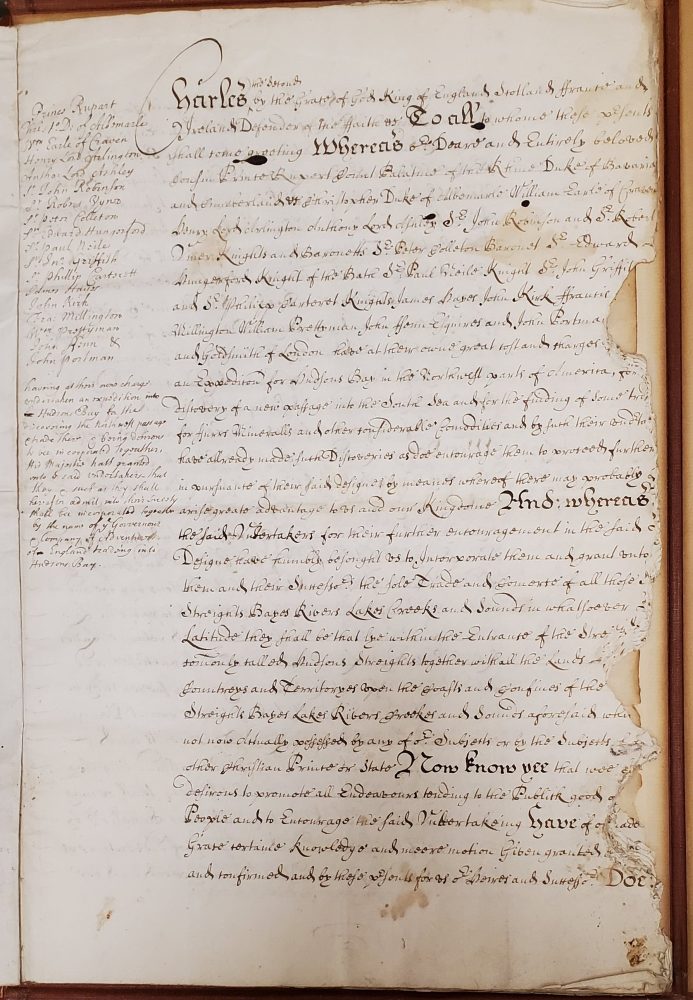 Prince Rupart
Chr: D: of Albemarle
Wm Earle of Craven
Henry Lord Arlington
Anthᵒ Lord Ashley
Sʳ John Robinson
Sʳ Robert Vyner
Sʳ Peter Colleton
Sʳ Edward Hungerford
Sʳ Paul Neile
Sʳ Jnᵒ Griffith
Sʳ Phillip Carterett
James Hayes
John Kirk
Fra: Millington
Wm Prettyman
John Fenn &
John Portman
having at their owne charge
undertaken an expedition into
Hudsons Bay for the
discovering the Northwest passage
& trade there & being desirous
to bee incorporated together
His Majestie hath granted
unto ye said undertakers that
they & such as they shall
hereafter admit into their Society
shall bee incorporated together
by the name of yᵉ Governour
& Company of Adventurers
of England trading into
Hudsons Bay.
Charles the second by the Grace of God King of England Scotland ffrance and
Ireland Defender of the faith &c To all to whome these pʳsents
shall come greeting Whereas oʳ Deare and Entirely beloved
Cousin Prince Rupert Count Palatine of the Rhine Duke of Bavaria
and Cumberland &c Christopher Duke of Albemarle William Earle of Craven
Henry Lord Arlington Anthony Lord Ashley Sʳ John Robinson and Sʳ Robert
Viner Knights and Baronetts Sʳ Peter Colleton Baronet Sʳ Edward
Hungerford Knight of the Bath Sʳ Paul Neile Knight Sʳ John Griffith
and Sʳ Phillipp Carteret Knights James Hayes John Kirk ffrancis
Millington William Prettyman John ffenn Esquires and John Portman
and Goldsmith of London have at their owne great cost and charges
an Expedicon for Hudsons Bay in the Northwest parts of America, for
discovery of a new passage into the South Sea and for the finding of some trade
for ffurrs Mineralls and other considerable Comodities and by such their undertakeing
have allready made such Discoveries as doe encourage them to proceed further
in pursuance of their said designe by meanes whereof there may probably
arise greate advantage to vs and our Kingdome And whereas
the said Vndertakers for their further encouragement in the said
Designe have humbly besought vs to Incorporate them and grant vnto
them and their Successoʳˢ the sole Trade and Comerce of all those
Streights Bayes Rivers Lakes Creekes and Sounds in whatsoever
Latitude they shall be that lye within the Entrance of the Streights
comonly called Hudsons Streights together with all the Lands
Countreys and Territoryes vpon the Coasts and Confines of the
Streights Bayes Lakes Rivers Creekes and Sounds aforesaid which
not now Actually possessed by any of oʳ Subjects or by the Subjects
other Christian Prince or State Now know yee that wee
desirous to promote all Endeavours tending to the Publick good
People and to Encourage the said Vndertakeing Have of
Grace certaine Knowledge and meere motion Given granted
and confirmed and by these pʳsents for vs oʳ Heires and Successoʳˢ Doe